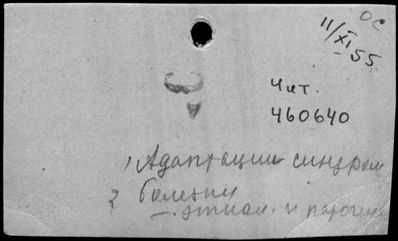 ОС
11/XI 55
Чит.
460640
1 Адаптации синдром
2 Болезни
– этиол. и патоген